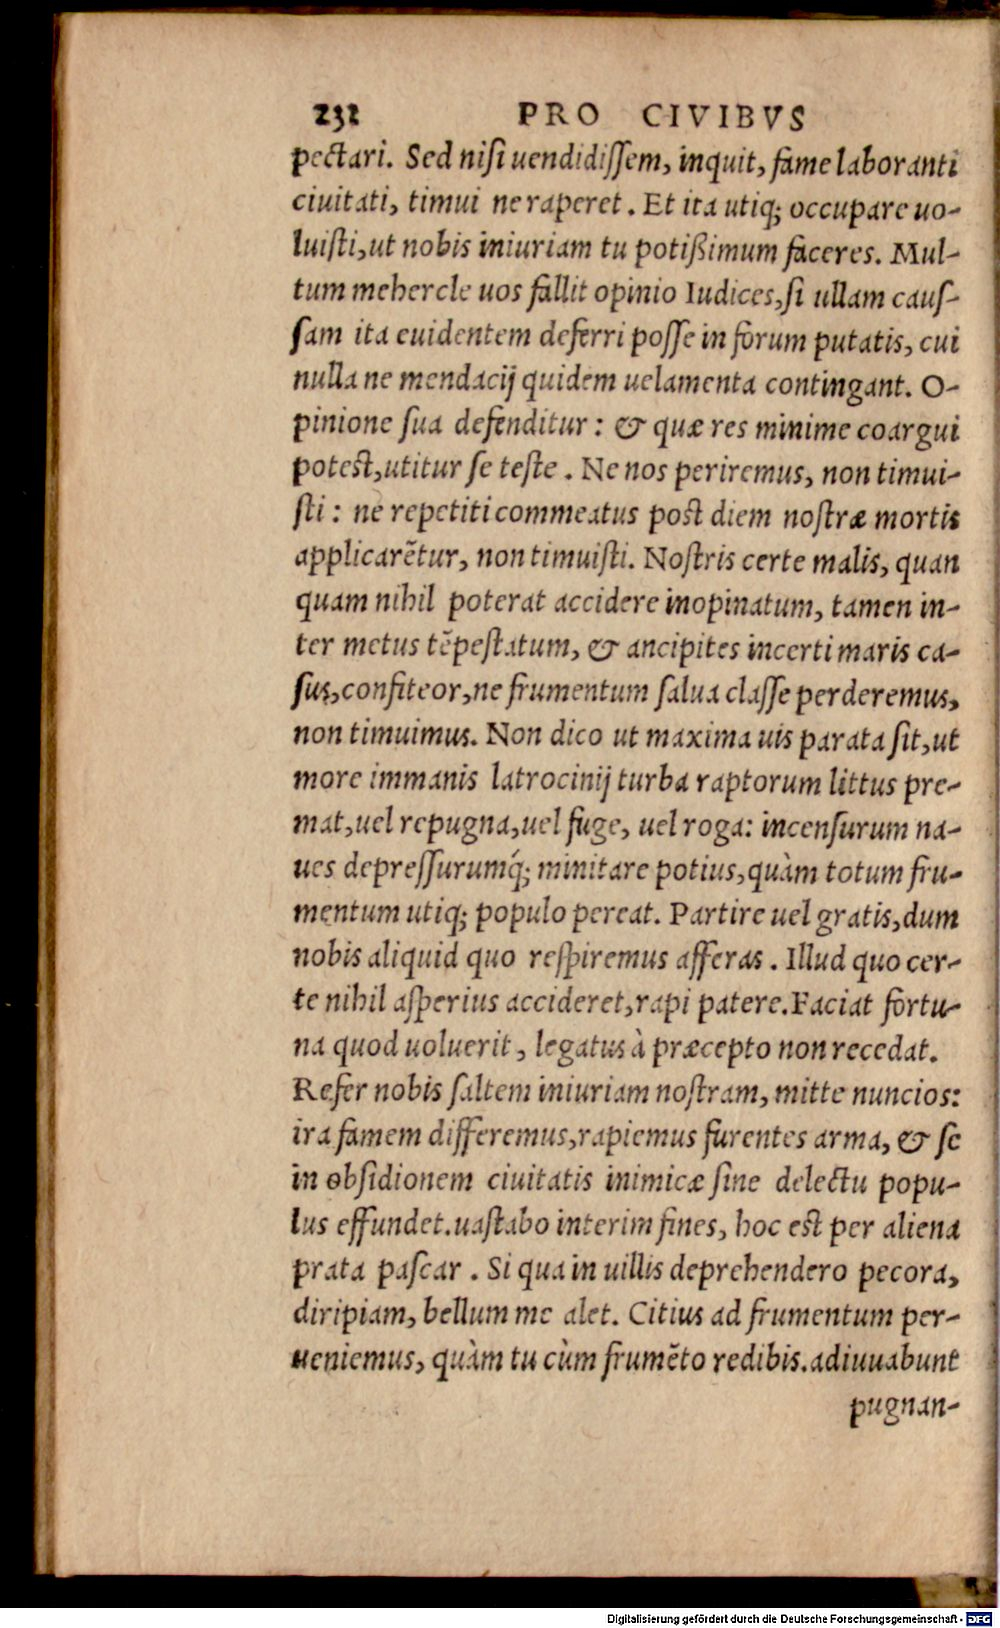 232 PRO CIVIBVS
pectari. Sed niſi uendidiſſem, inquit, fame laboranti
ciuitati, timui ne raperet. Et ita utiq; occupare uo-
luiſti, ut nobis iniuriam tu potißimum faceres. Mul-
tum mehercle uos fallit opinio Iudices, ſi ullam cauſ-
ſam ita euidentem deferri poſſe in forum putatis, cui
nulla ne mendacij quidem uelamenta contingant. O-
pinione ſua defenditur: & quæ res minime coargui
poteſt, utitur ſe teſte. Ne nos periremus, non timui-
ſti: ne repetiti commeatus poſt diem noſtræ mortis
applicarẽtur, non timuiſti. Noſtris certe malis, quan
quam nihil poterat accidere inopinatum, tamen in-
ter metus tẽpeſtatum, & ancipites incerti maris ca-
ſus, confiteor, ne frumentum ſalua claſſe perderemus,
non timuimus. Non dico ut maxima uis parata ſit, ut
more immanis latrocinij turba raptorum littus pre-
mat, uel repugna, uel fuge, uel roga: incenſurum na-
ues depreſſurumq́; minitare potius, quàm totum fru-
mentum utiq; populo pereat. Partire uel gratis, dum
nobis aliquid quo reſpiremus afferas. Illud quo cer-
te nihil aſperius accideret, rapi patere. Faciat fortu-
na quod uoluerit, legatus à præcepto non recedat.
Refer nobis ſaltem iniuriam noſtram, mitte nuncios:
ira famem differemus, rapiemus furentes arma, & ſe
in obſidionem ciuitatis inimicæ ſine delectu popu-
lus effundet. uaſtabo interim fines, hoc eſt per aliena
prata paſcar. Si qua in uillis deprehendero pecora,
diripiam, bellum me alet. Citius ad frumentum per-
ueniemus, quàm tu cùm frumẽto redibis. adiuuabunt
pugnan-
Digitalisierung gefördert durch die Deutsche Forschungsgemeinschaft - DFG